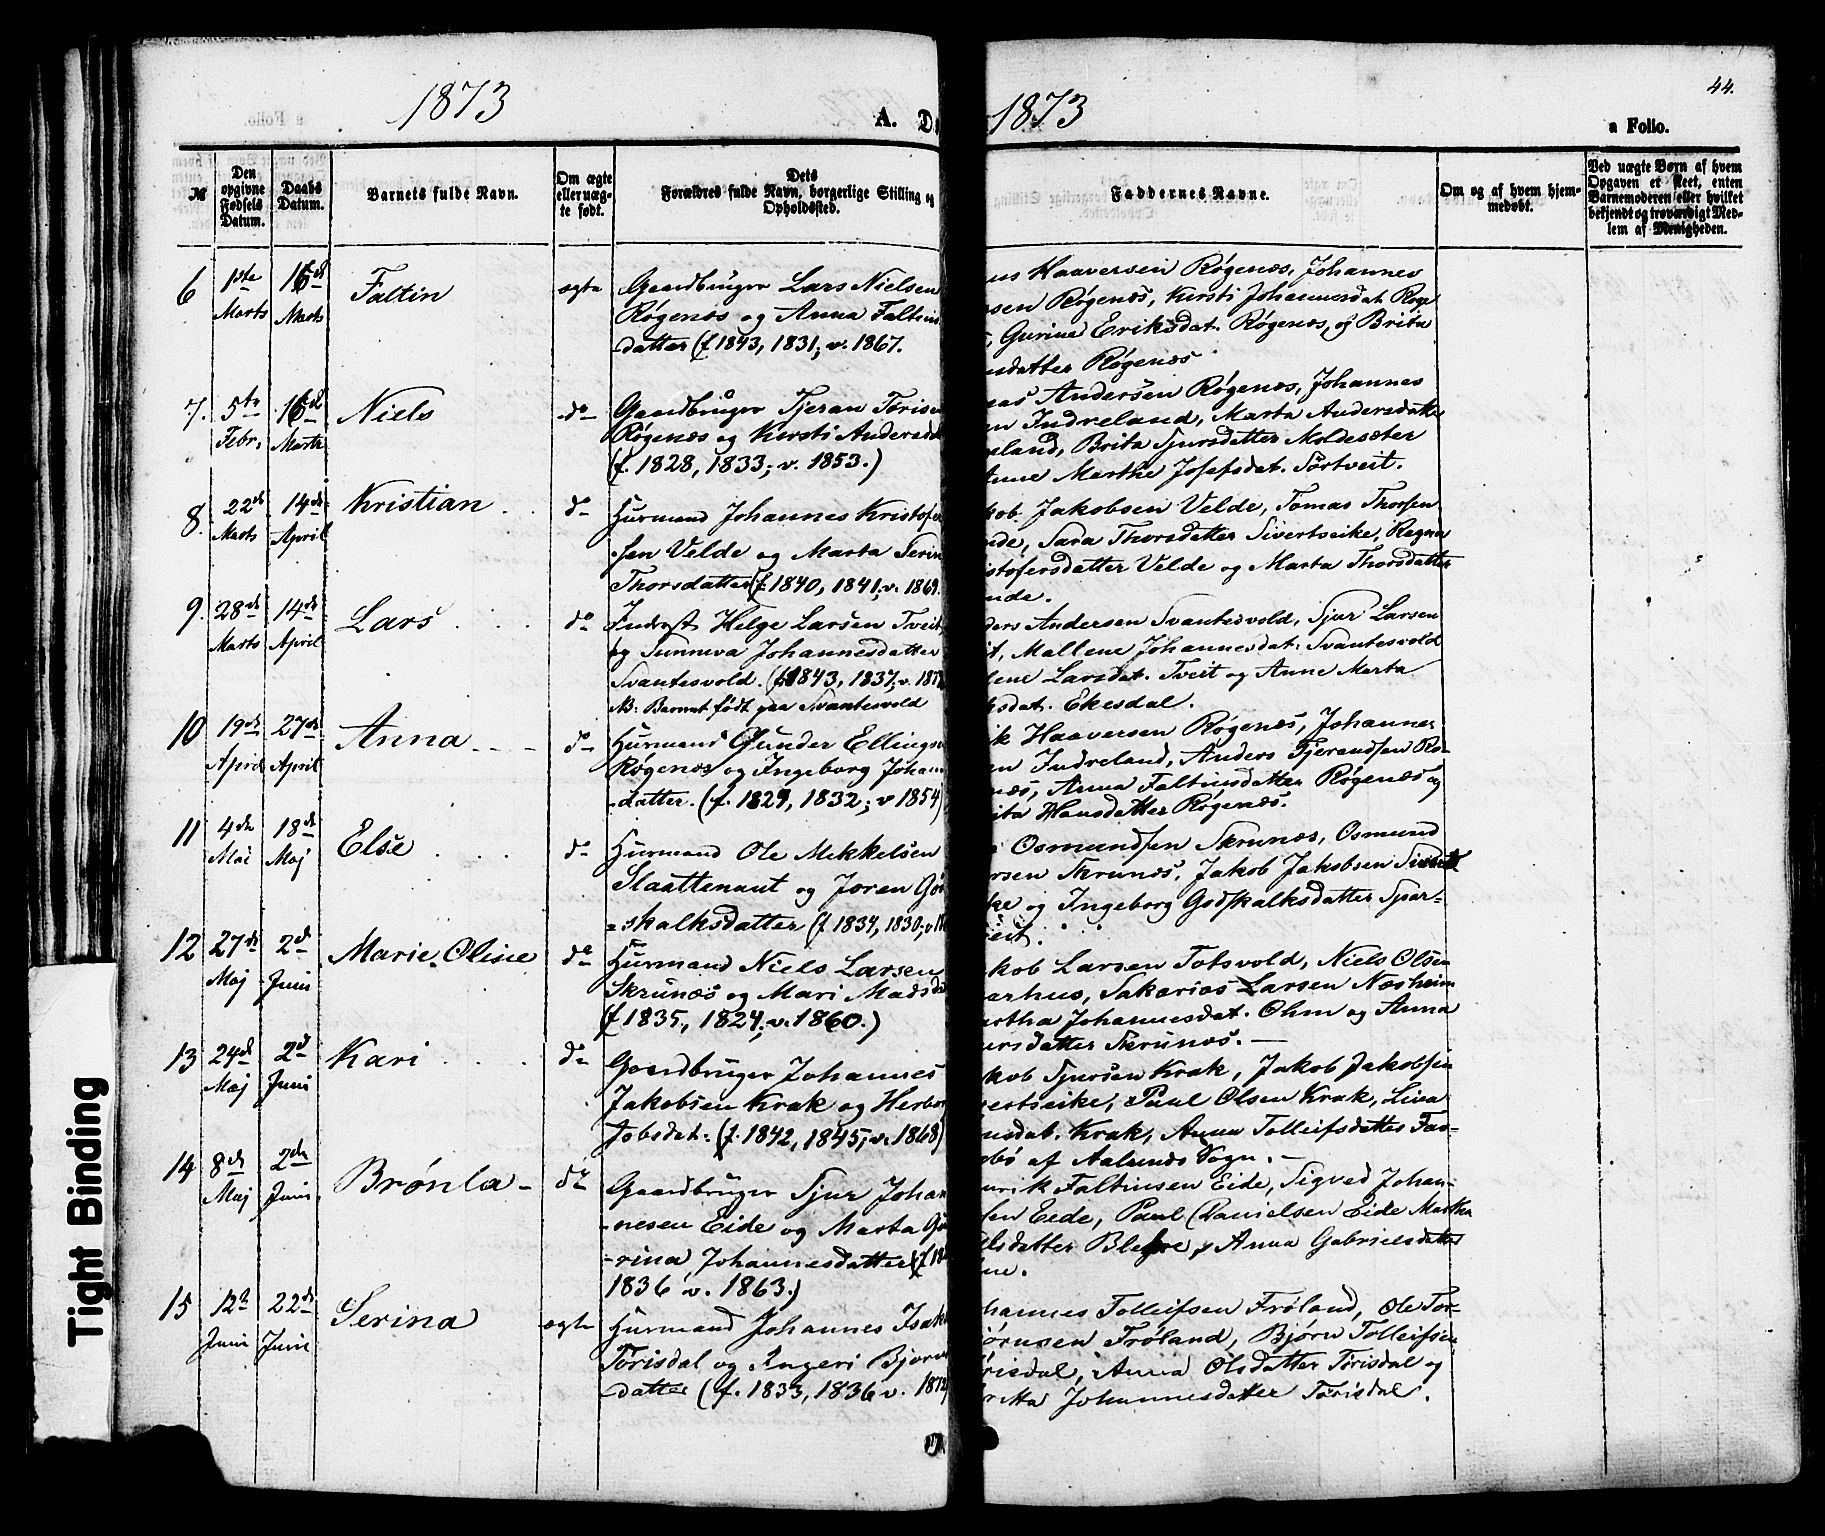 44.
1873
A. D
1873
a Folio.
№
Den opgivne Fødsels Datum.
Daabs Datum.
Barnets fulde Navn.
Om ægte eller uægte født.
Dets Forældres fulde Navn, borgerlige Stilling og Opholdssted.
Faddernes Navne.
Om og af hvem hjemmedøbt.
Ved uægte Børn af hvem Opgaven er skeet, enten Barnemoderen eller hvilket bekjendt og troværdigt Medlem af Menigheden.
6 1ste Marts 16de Marts Faltin ægte Gaardbruger Lars Nielsen
Røgenæs og Anna Faltins
datter (f. 1843, 1831; v. 1867.
us Haaversen Røgenæs, Johannes
sen Røgenæs, Kersti Johannesdat. Røge
, Gurine Eriksdat. Røgenæs, og Brita
sdatter Røgenæs
7. 5te Febr. 16de Marts Niels do Gaardbruger Tjeran Tøris
Røgenæs og Kersti Andersd
(f. 1828, 1833; v. 1853.)
eas Andersen Røgenæs, Johannes
en Indreland, Marta Andersdatte
eland, Brita Sjursdatter Moldesæter
Anne Marthe Josefsdat. Sørtveit.
8. 22de Marts 14de April Kristian do Huusmand Johannes Kristofe
sen Velde og Marta Serin
Thorsdatter (f. 1840, 1841; v. 1869.
kob. Jakobsen Velde, Tomas Thorsen
nde, Sara Thorsdatter Sivertseike, Ragna
istofersdatter Velde og Marta Thorsdatter
nde.
9. 28de Marts 14de April Lars do Inderst Helge Larsen Tveit
og Sunneva Johannesdatter
Svantesvold. (f. 1843, 1837; v. 187
NB: Barnet født paa Svantesvold
ders Andersen Svantesvold, Sjur Larsen
it, Mallene Johannesdat. Svantesvold
lene Larsdat. Tveit og Anne Marta
sdat. Ekesdal.
10 19de April 27de April Anna do Huusmand Gunder Ellings
Røgenæs og Ingeborg Johan
datter. (f. 1829, 1832; v 1854)
ik Haaversen Røgenæs, Johannes
en Indreland, Anders Tjerandsen Rø-
næs, Anna Faltinsdatter Røgenæs og
ita Hansdatter Røgenæs.
11 4de Mai 18de Maj Else do Huusmand Ole Mikkelsen
Slaattenaut og Joren Go
skalksdatter (f. 1834, 1830; v. 18
Osmundsen Skrunæs, Osmund
ersen Skrunæs, Jakob Jakobsen Sivert
ke og Ingeborg Godskalksdatter Spar-
eit.
12 27de Maj 2de Juni Marie Olisie do Huusmand Niels Larsen
Skrunæs og Mari Madsda
(f 1835, 1824; v. 1860.)
akob Larsen Totsvold, Niels Olsen
arhus, Sakarias Larsen Næsheim
artha Johannesdat. Ohm og Anna
ursdatter Skrunæs.
13 24de Maj 2de Juni Kari do Gaardbruger Johannes
Jakobsen Krak og Herbor
Jobsdat. (f. 1842, 1845; v. 1868)
akob Sjursen Krak, Jakob Jakobsen
vertseike, Paul Olsen Krak, Lisa
nsdat. Krak, Anna Tolleifsdatter
bø af Aalunds Sogn.
14 8de Maj 2den Juni Brønla do Gaardbruger Sjur Johan
nesen Eide og Marta Gu
rina Johannesdatter (f. 18
1836 v. 1863.)
enrik Faltinsen Eide, Sigved Johan-
sen Eide, Paul Danielsen Eide Martha
lsdatter og Anna Gabrielsdatter
ne.
15 12te Juni 22de Juni Serina ægte Huusmand Johannes Isak
Tørisdal og Ingeri Bjorn
datter (f. 1833, 1836 v. 1872
hannes Tolleifsen Frøland, Ole Tor-
jørnsen Frøland, Bjørn Tolleifsen
risdal, Anna Olsdatter Tørisdal og
ritta Johannesdatter Tørisdal.
Tight Binding